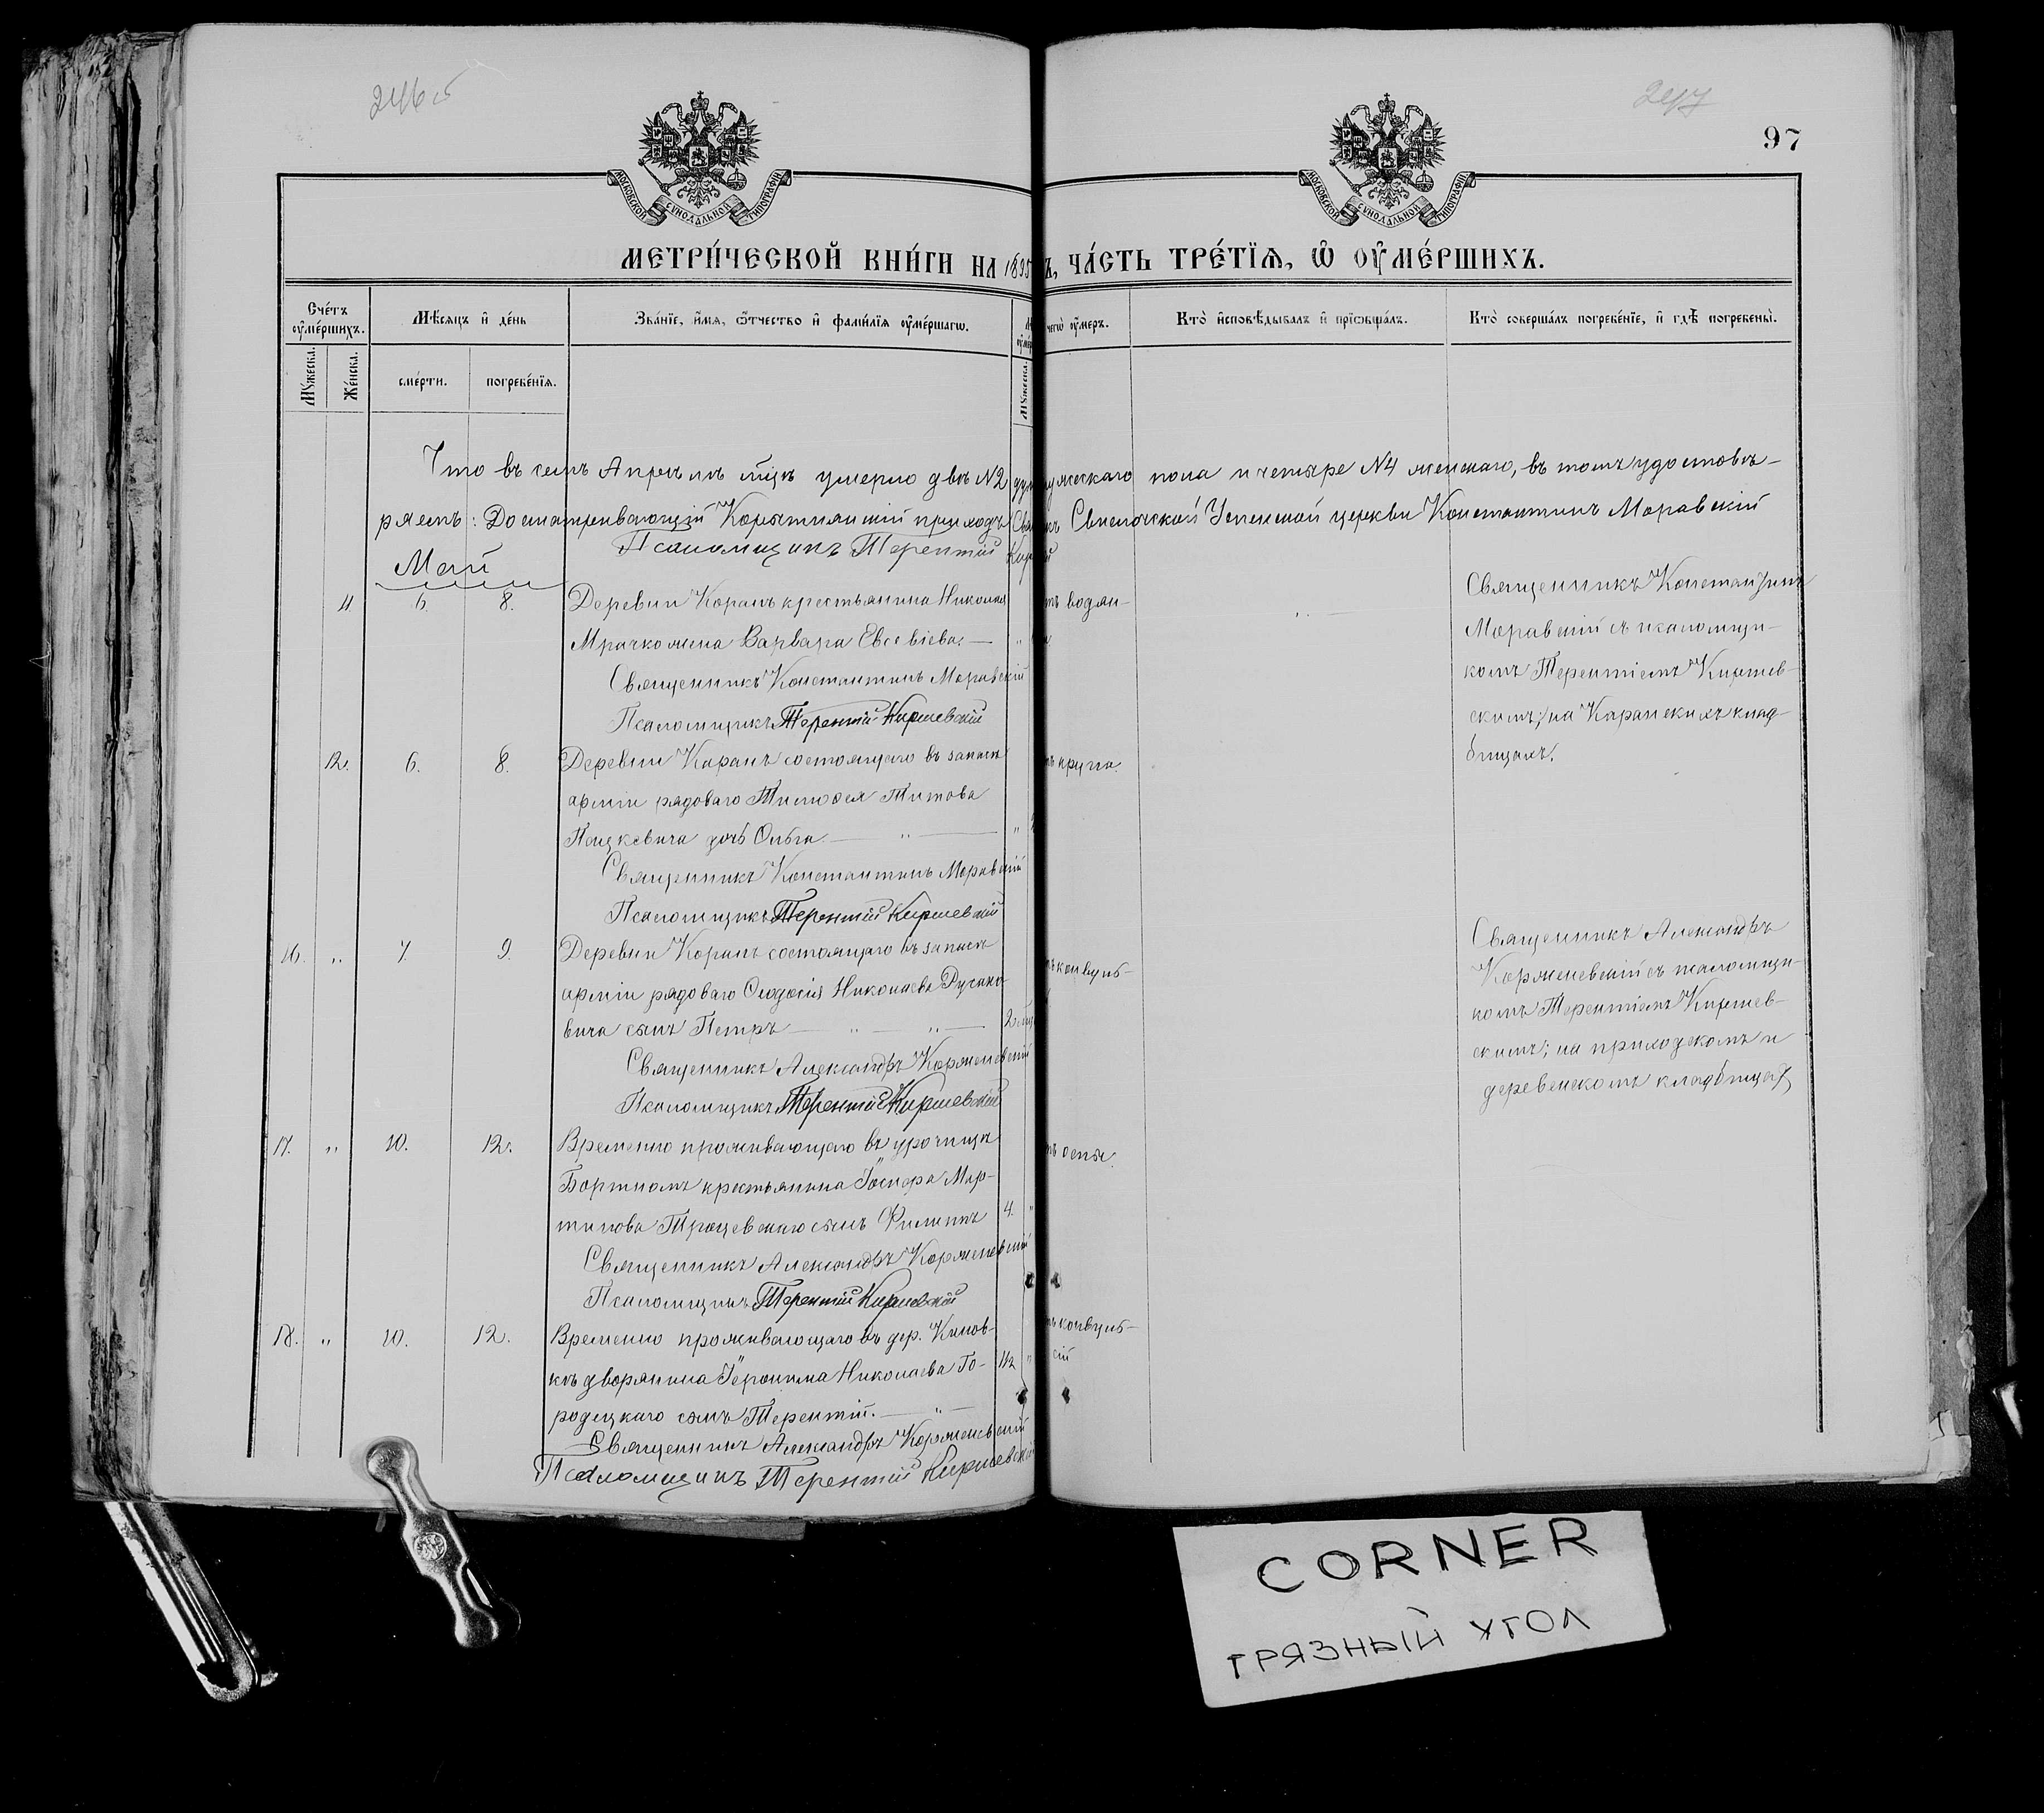 246об
247
97
МОСКОВСКОЙ СУНОДАЛЬНОЙ ТИПОГРАФІИ
МОСКОВСКОЙ СУНОДАЛЬНОЙ ТИПОГРАФІИ
МЕТРИ́ЧЕСКОЙ КНИ́ГИ НА 1895
Ъ, ЧА́СТЬ ТРЕ́ТІѦ, Ѿ ОУ҆МЕ́РШИХЪ.
Сче́тъ оу҆ме́ршихъ.
Мѣ́сяцъ и҆ де́нь
Зва́нїе, и҆́мя, ѻ҆́тчество и҆ фами́лїя оу҆ме́ршагѡ.
чегѡ̀ оу҆́меръ.
Кто̀ и҆сповѣ́дывалъ и҆ прїѡбща́лъ.
Кто̀ соверша́лъ погребе́нїе, и҆ гдѣ̀ погребены̀.
Мꙋ́жеска.
Же́нска.
сме́рти.
погребе́нїя.
Мꙋ́жеска.
Что въ семъ Апрѣлѣ мцѣ умерло двѣ №2 мужескаго пола и четыре №4 женскаго, въ томъ удостовѣ-
ряемъ: Досматривающій приходъ Свислочской Успенской церкви Константинъ Моравскій
Псаломщикъ Терентій
Май
11 6. 8. Деревни Коранъ крестьянина Николая
водян-
Мрачко жена Варвара Евсевіева.
Священникъ Константинъ Моравскій
Псаломщикъ Терентій Киршевскій
Священникъ Константинъ
Моравскій съ псаломщи-
комъ Терентіемъ Киршев-
скимъ; на Каранскихъ клад-
бищахъ.
12. 6. 8. Деревни Каранъ состоящаго въ запасѣ
крупа.
арміи рядоваго Тимоѳея Титова
Пацкевича дочь Ольга.
Священникъ Константинъ Моравскій
Псаломщикъ Терентій Киршевскій
16. „ 7. 9. Деревни Коранъ состоящаго въ запасѣ
конвуль-
арміи рядоваго Ѳеодосія Николаева Русако-
вича сынъ Петръ
Священникъ Александръ Корженевскій
Псаломщикъ Терентій Киршевскій
Священникъ Александръ
Корженевскій съ псаломщи-
комъ Терентіемъ Киршев-
скимъ; на приходскомъ и
деревенскомъ кладбищахъ
17. „ 10. 12. Временно проживающаго въ урочищѣ
оспы.
Бортномъ крестьянина Іосифа Мар-
тинова сынъ Филиппъ 4. „
Священникъ Александръ Корженевскій
Псаломщикъ Терентій Киршевскій
18. „ 10. 12. Временно проживающаго въ дер.
конвуль-
сій
кѣ дворянина Іеронима Николаева Го-
родецкаго сынъ Терентій.
Священникъ Александръ Корженевскій
Псаломщикъ Терентій Киршевскій
CORNER
ГРЯЗНЫЙ УГОЛ